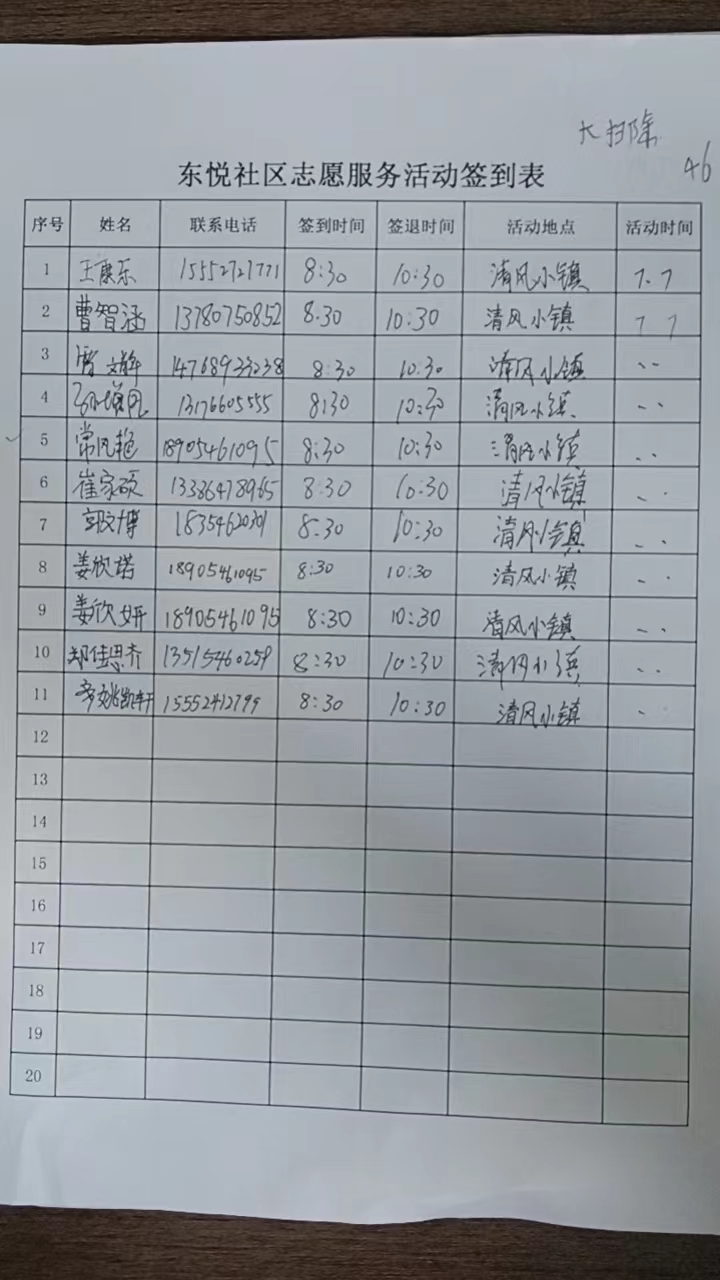 大扫除
46
东悦社区志愿服务活动签到表
序号 姓名 联系电话 签到时间 签退时间 活动地点 活动时间
1 王康东 15552727771 8:30 10:30 清风小镇 7.7
2 曹智涵 13780750852 8:30 10:30 清风小镇 7 7
3 14768933238 8:30 10:30 清风小镇 ··
4 13176605555 8:30 10:30 清风小镇 ··
5 常风艳 18905461095 8:30 10:30 清风小镇 ··
6 崔家硕 13386478965 8:30 10:30 清风小镇 ··
7 郭文博 18354620301 8:30 10:30 清风小镇 ··
8 姜欣诺 18905461095 8:30 10:30 清风小镇 ··
9 姜欣妍 18905461095 8:30 10:30 清风小镇 ··
10 郑佳思齐 13515460259 8:30 10:30 清风小镇 ··
11 15552412799 8:30 10:30 清风小镇 ··
12
13
14
15
16
17
18
19
20